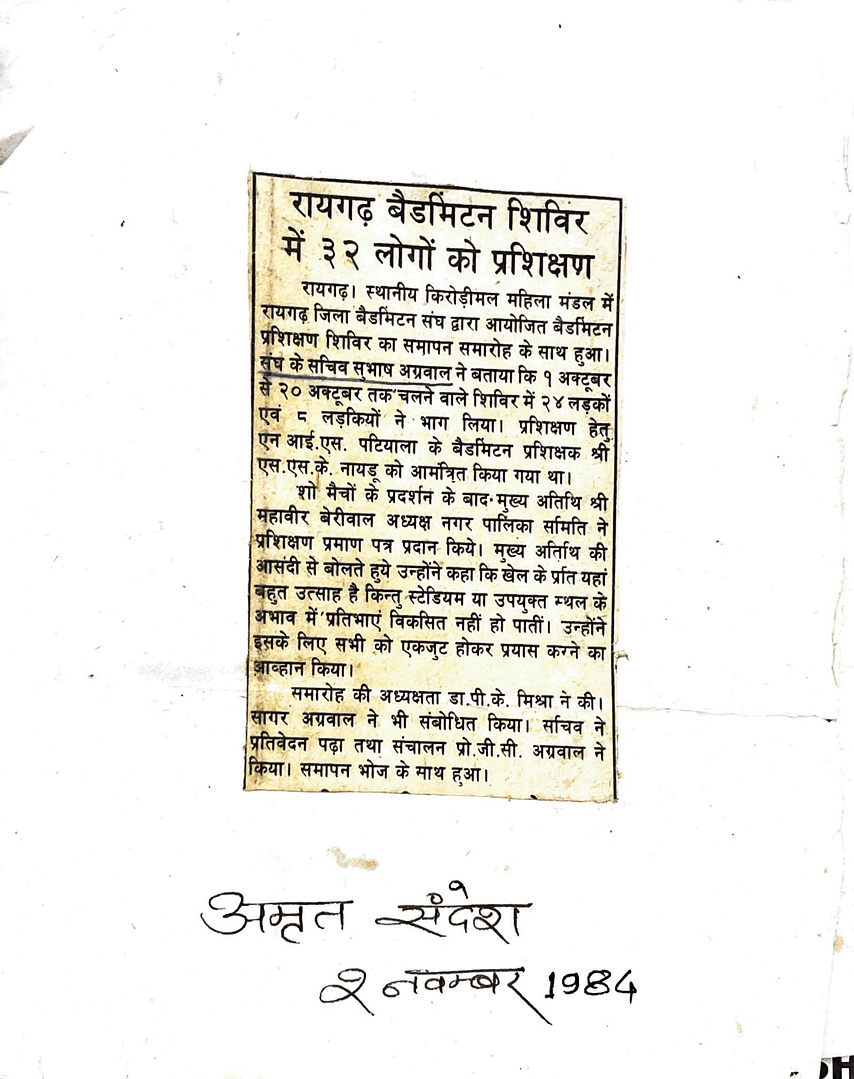 रायगढ़ बैडमिंटन शिविर
में ३२ लोगों को प्रशिक्षण
रायगढ़। स्थानीय किरोड़ीमल महिला मंडल में
रायगढ़ जिला बैडमिंटन संघ द्वारा आयोजित बैडमिंटन
प्रशिक्षण शिविर का समापन समारोह के साथ हुआ।
संघ के सचिव सुभाष अग्रवाल ने बताया कि १ अक्टूबर
से २० अक्टूबर तक चलने वाले शिविर में २४ लड़कों
एवं ८ लड़कियों ने भाग लिया। प्रशिक्षण हेतु
एन आई.एस. पटियाला के बैडमिंटन प्रशिक्षक श्री
एस.एस.के. नायडू को आमंत्रित किया गया था।
शो मैचों के प्रदर्शन के बाद मुख्य अतिथि श्री
महावीर बेरीवाल अध्यक्ष नगर पालिका समिति ने
प्रशिक्षण प्रमाण पत्र प्रदान किये। मुख्य अतिथि की
आसंदी से बोलते हुये उन्होंने कहा कि खेल के प्रति यहां
बहुत उत्साह है किन्तु स्टेडियम या उपयुक्त स्थल के
अभाव में प्रतिभाएं विकसित नहीं हो पातीं। उन्होंने
इसके लिए सभी को एकजुट होकर प्रयास करने का
आव्हान किया।
समारोह की अध्यक्षता डा.पी.के. मिश्रा ने की।
सागर अग्रवाल ने भी संबोधित किया। सचिव ने
प्रतिवेदन पढ़ा तथा संचालन प्रो.जी.सी. अग्रवाल ने
किया। समापन भोज के साथ हुआ।
अमृत संदेश
२ नवम्बर 1984